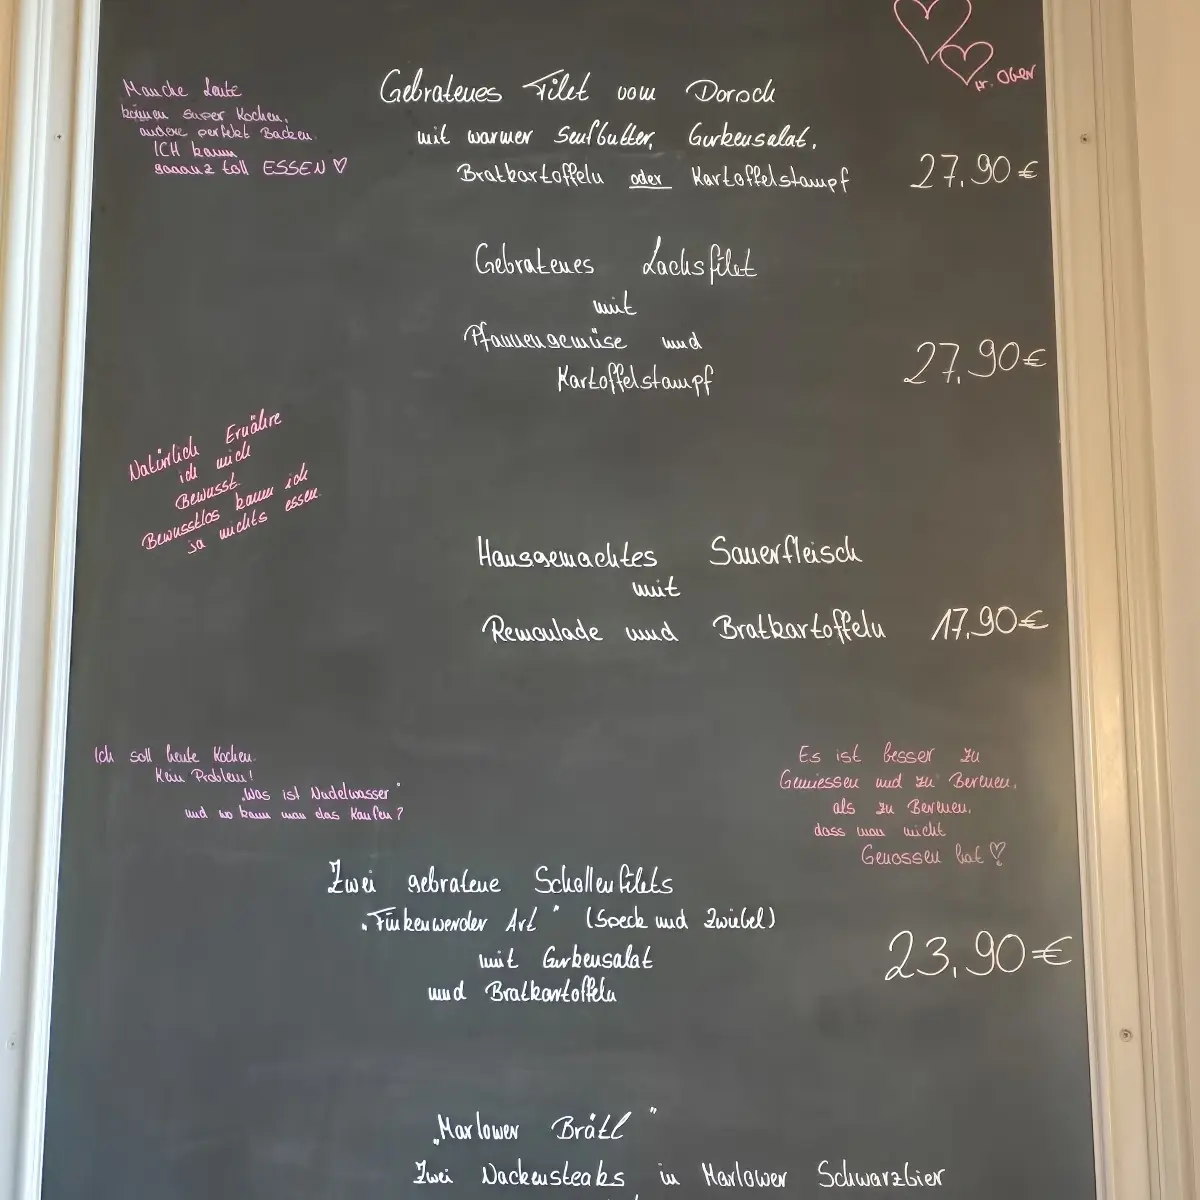 Manche Leute
können super Kochen,
andere perfekt Backen.
ICH kann
gaaanz toll ESSEN ♡
Gebratenes Filet vom Dorsch
mit warmer Senfbutter, Gurkensalat,
Bratkartoffeln oder Kartoffelstampf 27,90 €
Gebratenes Lachsfilet
mit
Pfannengemüse und
Kartoffelstampf 27,90 €
Natürlich Ernähre
ich mich
Bewusst.
Bewusstlos kann ich
ja nichts essen
Hausgemachtes Sauerfleisch
mit
Remoulade und Bratkartoffeln 17,90 €
Ich soll heute Kochen.
Kein Problem!
„Was ist Nudelwasser"
und wo kann man das Kaufen?
Es ist besser zu
Geniessen und zu Bereuen,
als zu Bereuen,
dass man nicht
Genossen hat ♡
Zwei gebratene Schollenfilets
„Finkenwerder Art" (Speck und Zwiebel)
mit Gurkensalat
und Bratkartoffeln 23,90 €
„Marlower Brätl"
Zwei Nackensteaks in Marlower Schwarzbier